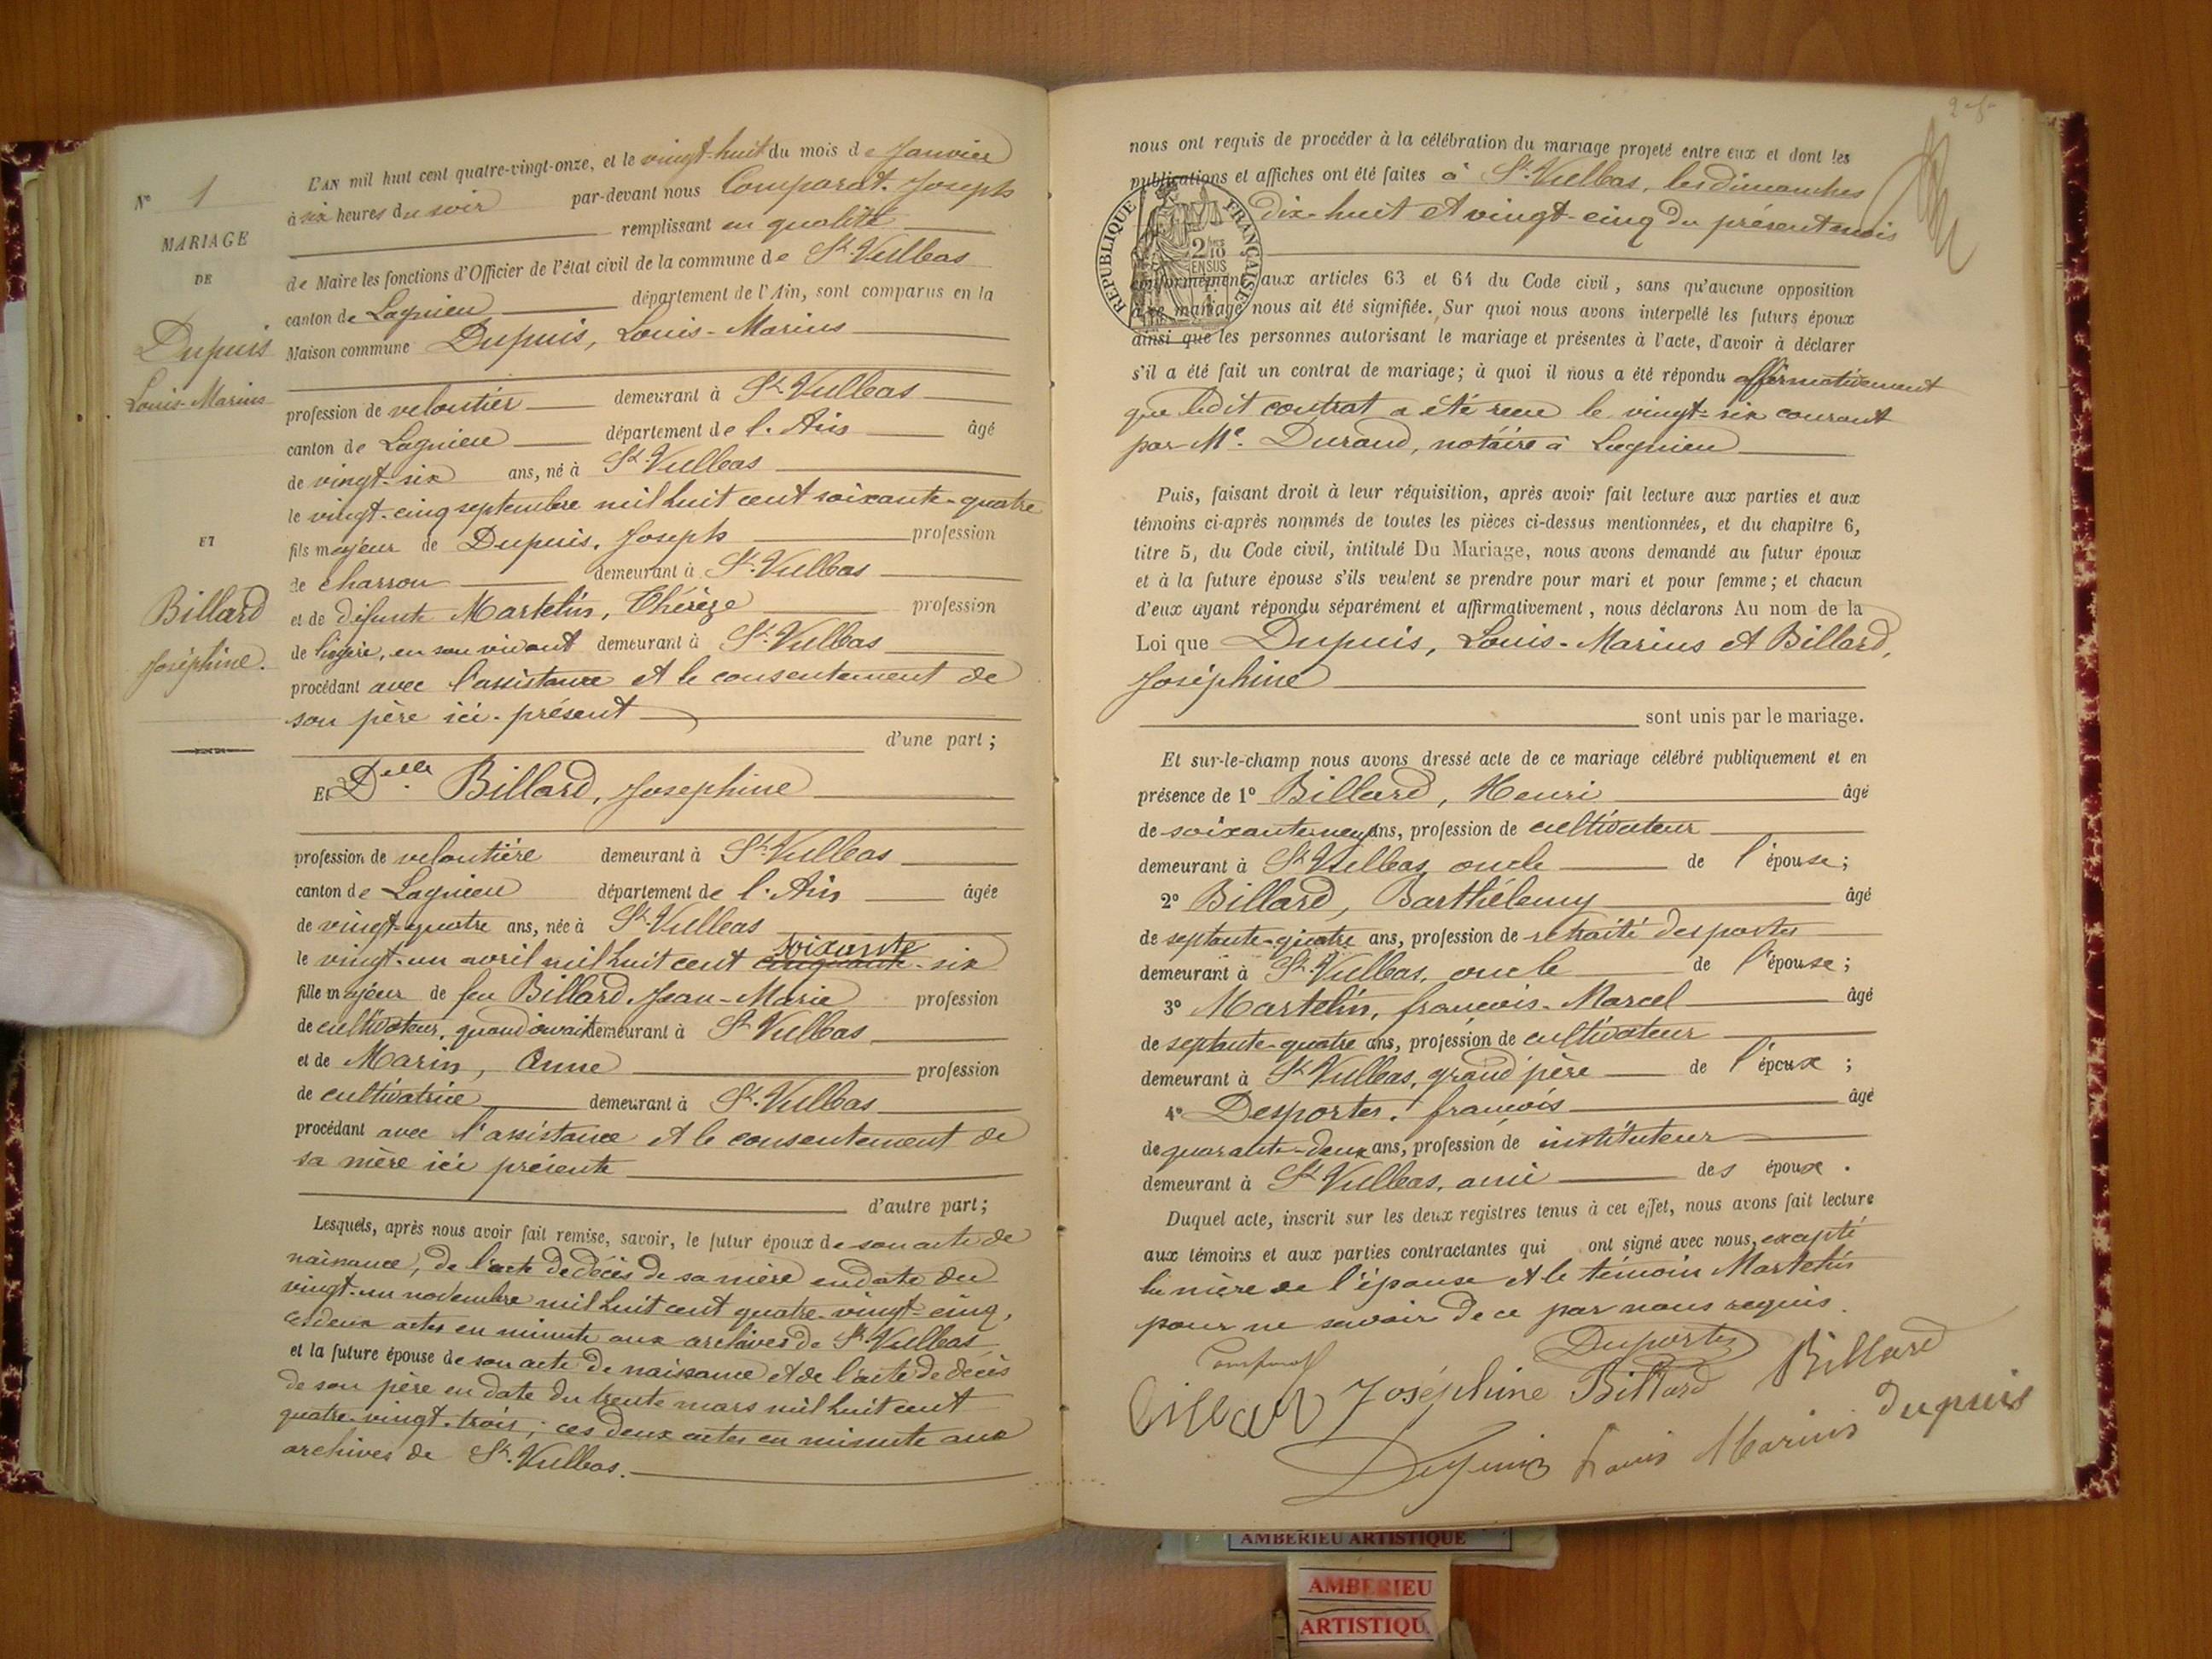 N° 1
MARIAGE
DE
Dupuis
Louis-Marius
ET
Billard
Joséphine.
L'AN mil huit cent quatre-vingt-onze, et le vingt-huit du mois de Janvier
à six heures du soir par-devant nous Comparat. Joseph
remplissant en qualité
de Maire les fonctions d'Officier de l'état civil de la commune de St. Vulbas
canton de Lagnieu département de l'Ain, sont comparus en la
Maison commune Dupuis, Louis-Marius
profession de veloutier demeurant à St. Vulbas
canton de Lagnieu département de l'Ain âgé
de vingt-six ans, né à St. Vulbas
le vingt-cinq septembre mil huit cent soixante-quatre
fils majeur de Dupuis, Joseph profession
de charron demeurant à St. Vulbas
et de défunte Martelin, Thérèze profession
de lingère, en son vivant demeurant à St. Vulbas
procédant avec l'assistance et le consentement de
son père ici-présent
d'une part ;
Et Delle Billard, Josephine
profession de veloutière demeurant à St. Vulbas
canton de Lagnieu département de l'Ain âgée
de vingt-quatre ans, née à St. Vulbas
le vingt-un avril mil huit cent cinquante soixante-six
fille majeur de feu Billard Jean-Marie profession
de cultivateur, quand vivait demeurant à St. Vulbas
et de Marin, Anne profession
de cultivatrice demeurant à St. Vulbas
procédant avec l'assistance et le consentement de
sa mère ici présente
d'autre part ;
Lesquels, après nous avoir fait remise, savoir, le futur époux de son acte de
naissance, de l'acte de décès de sa mère en date du
vingt-un novembre mil huit cent quatre-vingt-cinq,
ces deux actes en minute aux archives de St. Vulbas
et la future épouse de son acte de naissance et de l'acte de décès
de son père en date du trente mars mil huit cent
quatre-vingt-trois ; ces deux actes en minute aux
archives de St. Vulbas.
nous ont requis de procéder à la célébration du mariage projeté entre eux et dont les
publications et affiches ont été faites à St. Vulbas, les dimanches
dix-huit et vingt-cinq du présent mois
RÉPUBLIQUE FRANÇAISE
2/10
EN SUS
conformément aux articles 63 et 64 du Code civil, sans qu'aucune opposition
à ce mariage nous ait été signifiée. Sur quoi nous avons interpellé les futurs époux
ainsi que les personnes autorisant le mariage et présentes à l'acte, d'avoir à déclarer
s'il a été fait un contrat de mariage ; à quoi il nous a été répondu affirmativement
que ledit contrat a été reçu le vingt-six courant
par Me. Durand, notaire à Lagnieu
Puis, faisant droit à leur réquisition, après avoir fait lecture aux parties et aux
témoins ci-après nommés de toutes les pièces ci-dessus mentionnées, et du chapitre 6,
titre 5, du Code civil, intitulé Du Mariage, nous avons demandé au futur époux
et à la future épouse s'ils veulent se prendre pour mari et pour femme ; et chacun
d'eux ayant répondu séparément et affirmativement, nous déclarons Au nom de la
Loi que Dupuis, Louis-Marius et Billard,
Joséphine
sont unis par le mariage.
Et sur-le-champ nous avons dressé acte de ce mariage célébré publiquement et en
présence de 1° Billard, Henri âgé
de soixante-neuf ans, profession de cultivateur
demeurant à St. Vulbas, oncle de l'épouse ;
2° Billard, Barthélemy âgé
de septante-quatre ans, profession de retraité des postes
demeurant à St. Vulbas, oncle de l'épouse ;
3° Martelin, françois-Marcel âgé
de septante-quatre ans, profession de cultivateur
demeurant à St. Vulbas, grand père de l'époux ;
4° Desportes, françois âgé
de quarante-deux ans, profession de instituteur
demeurant à St. Vulbas, ami des époux.
Duquel acte, inscrit sur les deux registres tenus à cet effet, nous avons fait lecture
aux témoins et aux parties contractantes qui ont signé avec nous, excepté
la mère de l'épouse et le témoin Martelin
pour ne savoir de ce par nous requis.
Comparat Desportes Billard
Billard Joséphine Billard
Dupuis Louis Marius Dupuis
AMBERIEU ARTISTIQUE
AMBERIEU
ARTISTIQU